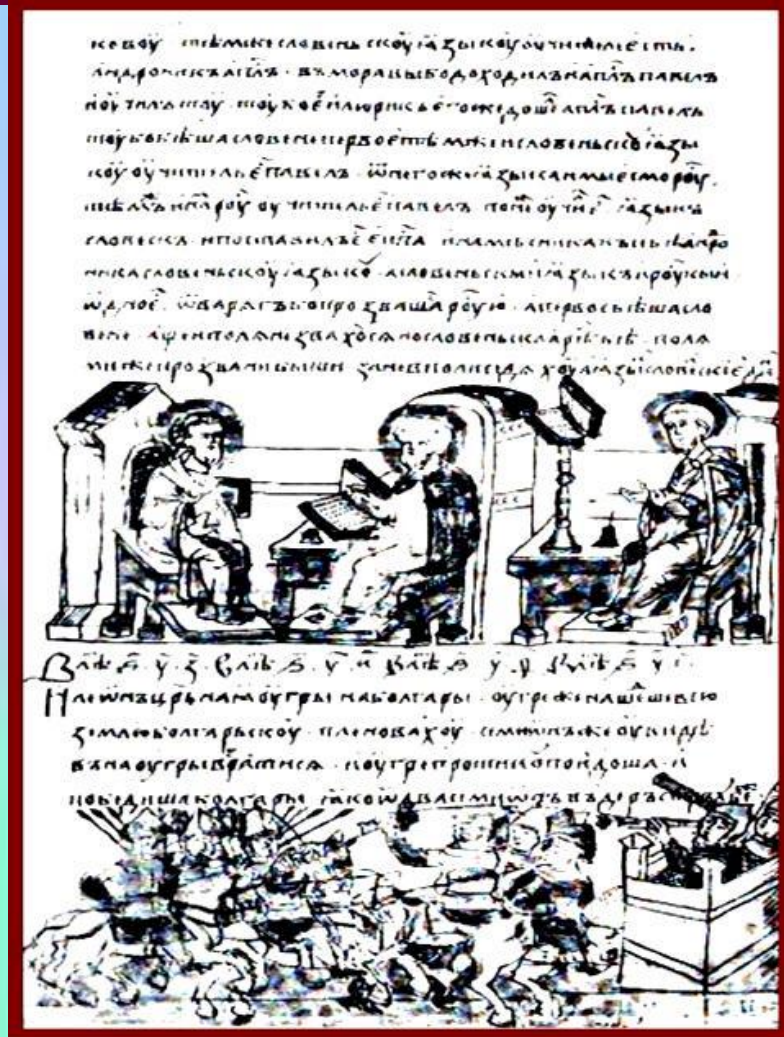 ковоу тѣмже словеньскоу ꙗзыкоу оучитель есть.
андроникъ ап҃лъ · въ моравы бо доходилъ и ап҃лъ павелъ
и оучилъ тоу · тоу бо е҃ илюрикъ егоже доше ап҃лъ павелъ
тоу бо бѣша словене первое тѣмже и словеньскоу ꙗзы
коу оучитель е҃ павелъ · ѿ негоже ꙗзыка и мы есмо роу
оучитель е҃ павелъ оучи ꙗзыкъ
словескъ и поставилъ е намѣсника андро
ника словеньскоу ꙗзыкоу · а словеньскии ꙗзыкъ и роукыи
ѿдное ѿ варягъ бо прозваша роую · а первое бѣша сло
вене · аще и поляне звахося но словеньскаа рѣ бѣ · поля
ми же прозвани быши зане в поли сѣдяхоу а ꙗзы словескіе
В лѣ ҂ѕ · у · з · В лѣ ҂ѕ · у · и В лѣ ҂ѕ у · ѳ · В лѣ ҂ѕ у і ·
И леѡнъ цр҃ь ная оугры на болгары · оугре же нашеше всю
землю болгарьскоу · пленовахоу · симиѡнъ же оувидѣ
въ на оугры вратися · и оугре противоу поидоша · и
победиша болгары ꙗко ѡдва симиѡнъ въ деръстръ